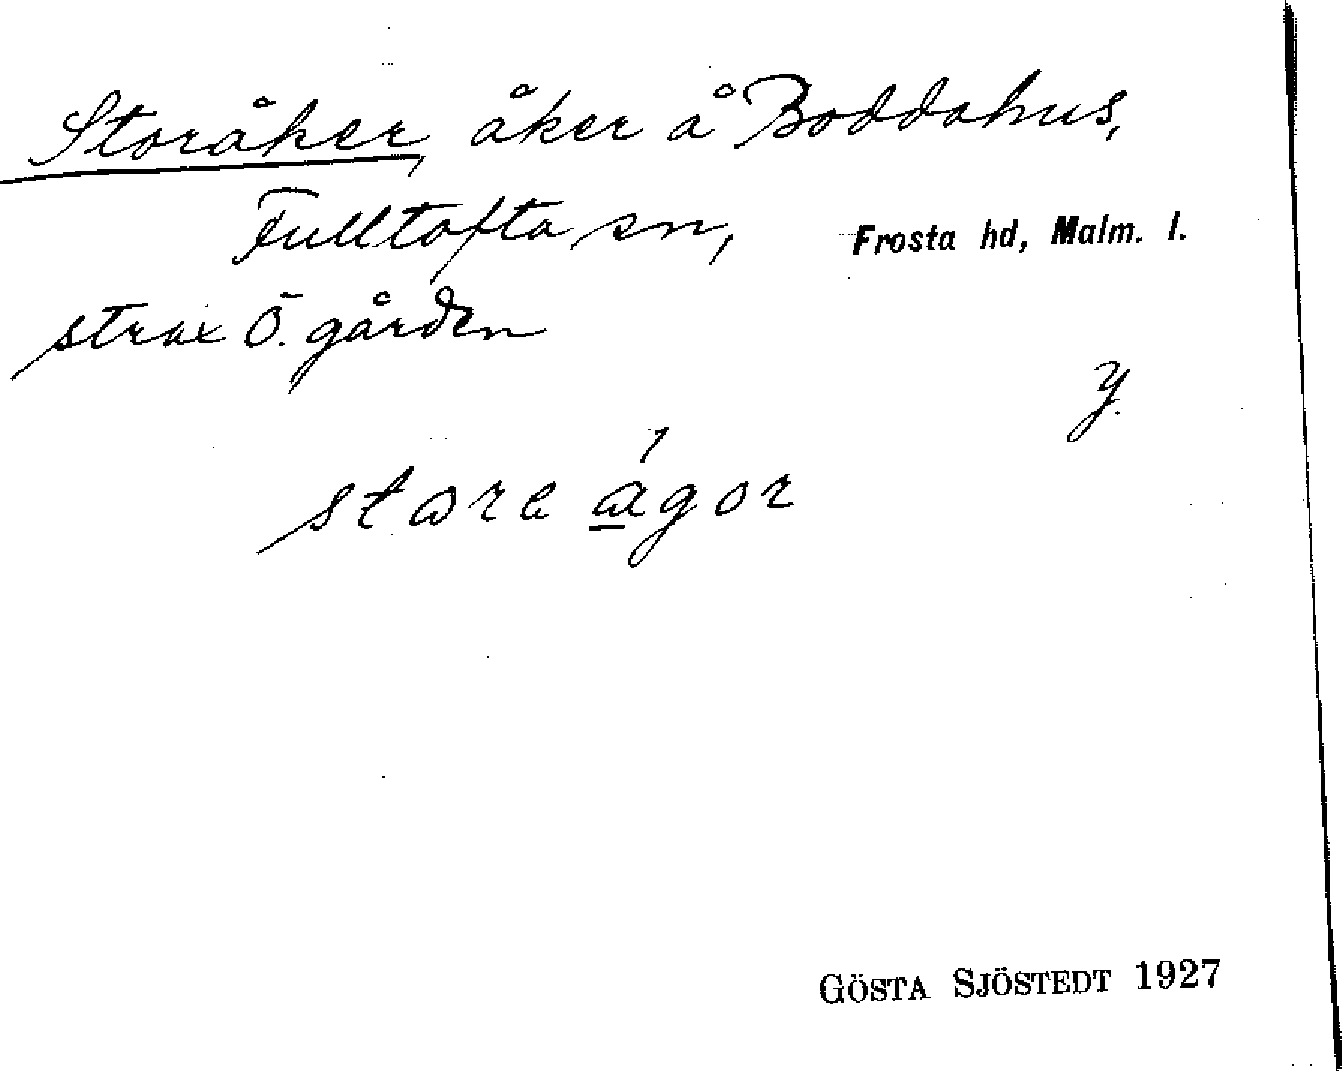 Storåker, åker å Boddahus,
Fulltofta sn, Frosta hd, Malm. l.
strax Ö. gården
y.
store ágor
GÖSTA SJÖSTEDT 1927